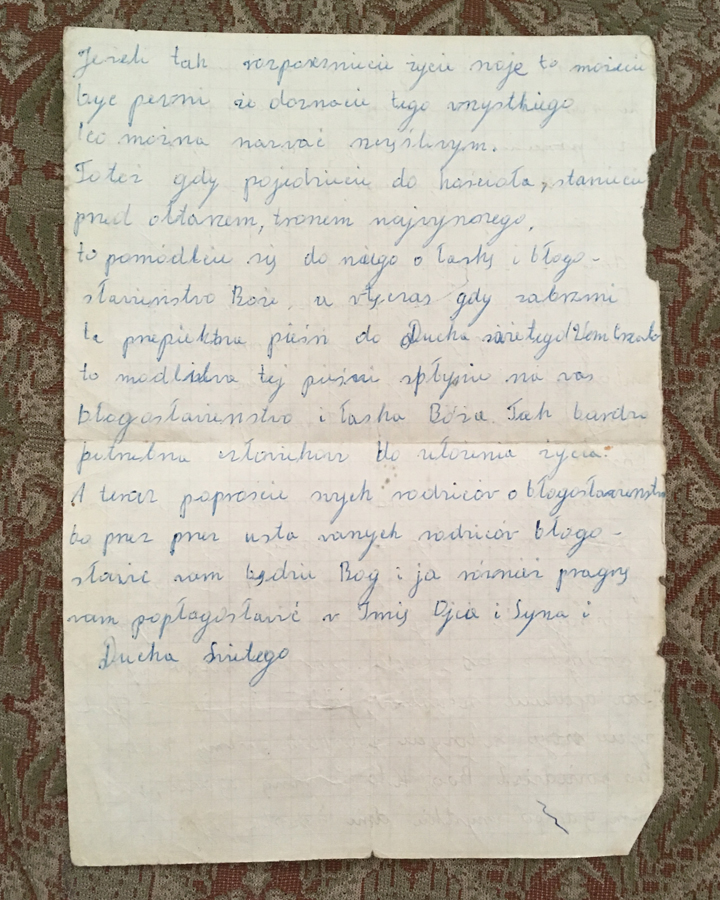 Jeżeli tak rozpoczniecie życie swoje to możecie
być pewni że doznacie tego wszystkiego
co można nazwać szczęśliwym.
Toteż gdy pojedziecie do kościoła, staniecie
pred ołtarzem, tronem najwyższego,
to pomódlcie się do niego o łaskę i błogo-
sławieństwo Boże, a wtęczas gdy zabrzmi
ta przepiekna pieśń do Ducha świetego
to modlitwa tej pieśni spłynie na was
błogosławienstwo i łaska Boża. Tak bardzo
potrzebna człowiekowi do ułożenia życia.
A teraz poproście swych rodziców o błogosławienstwo
bo przez przez usta waszych rodziców błogo-
sławić wam będzie Bog i ja również pragnę
wam popłagosławić w Imię Ojca i Syna i
Ducha Świetego